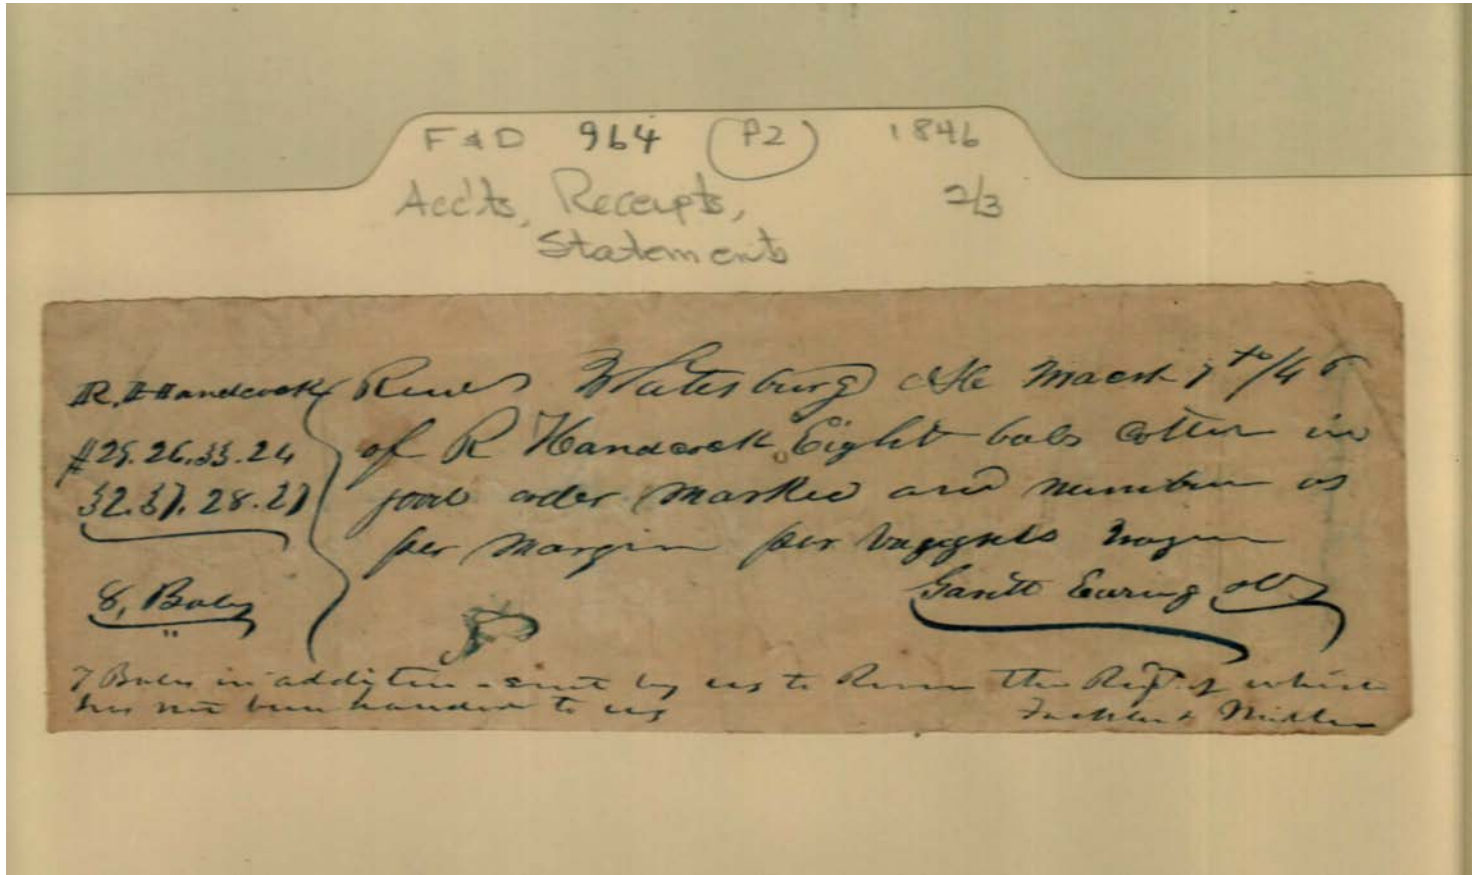 F & D 964 (P2) 1846
Acc'ts, Receipts, 2/3
Statements
R. Handcock
#29. 26. 33. 24
32. 37. 28. 27
8, Bales
Whitesburg March 7th/46
of R Handcock Eight bals Cotton in
good order marked and number as
per margin per wagon
Garett Earing
7 Bales in addition sent by us to the Rept of which
has not been handed to us